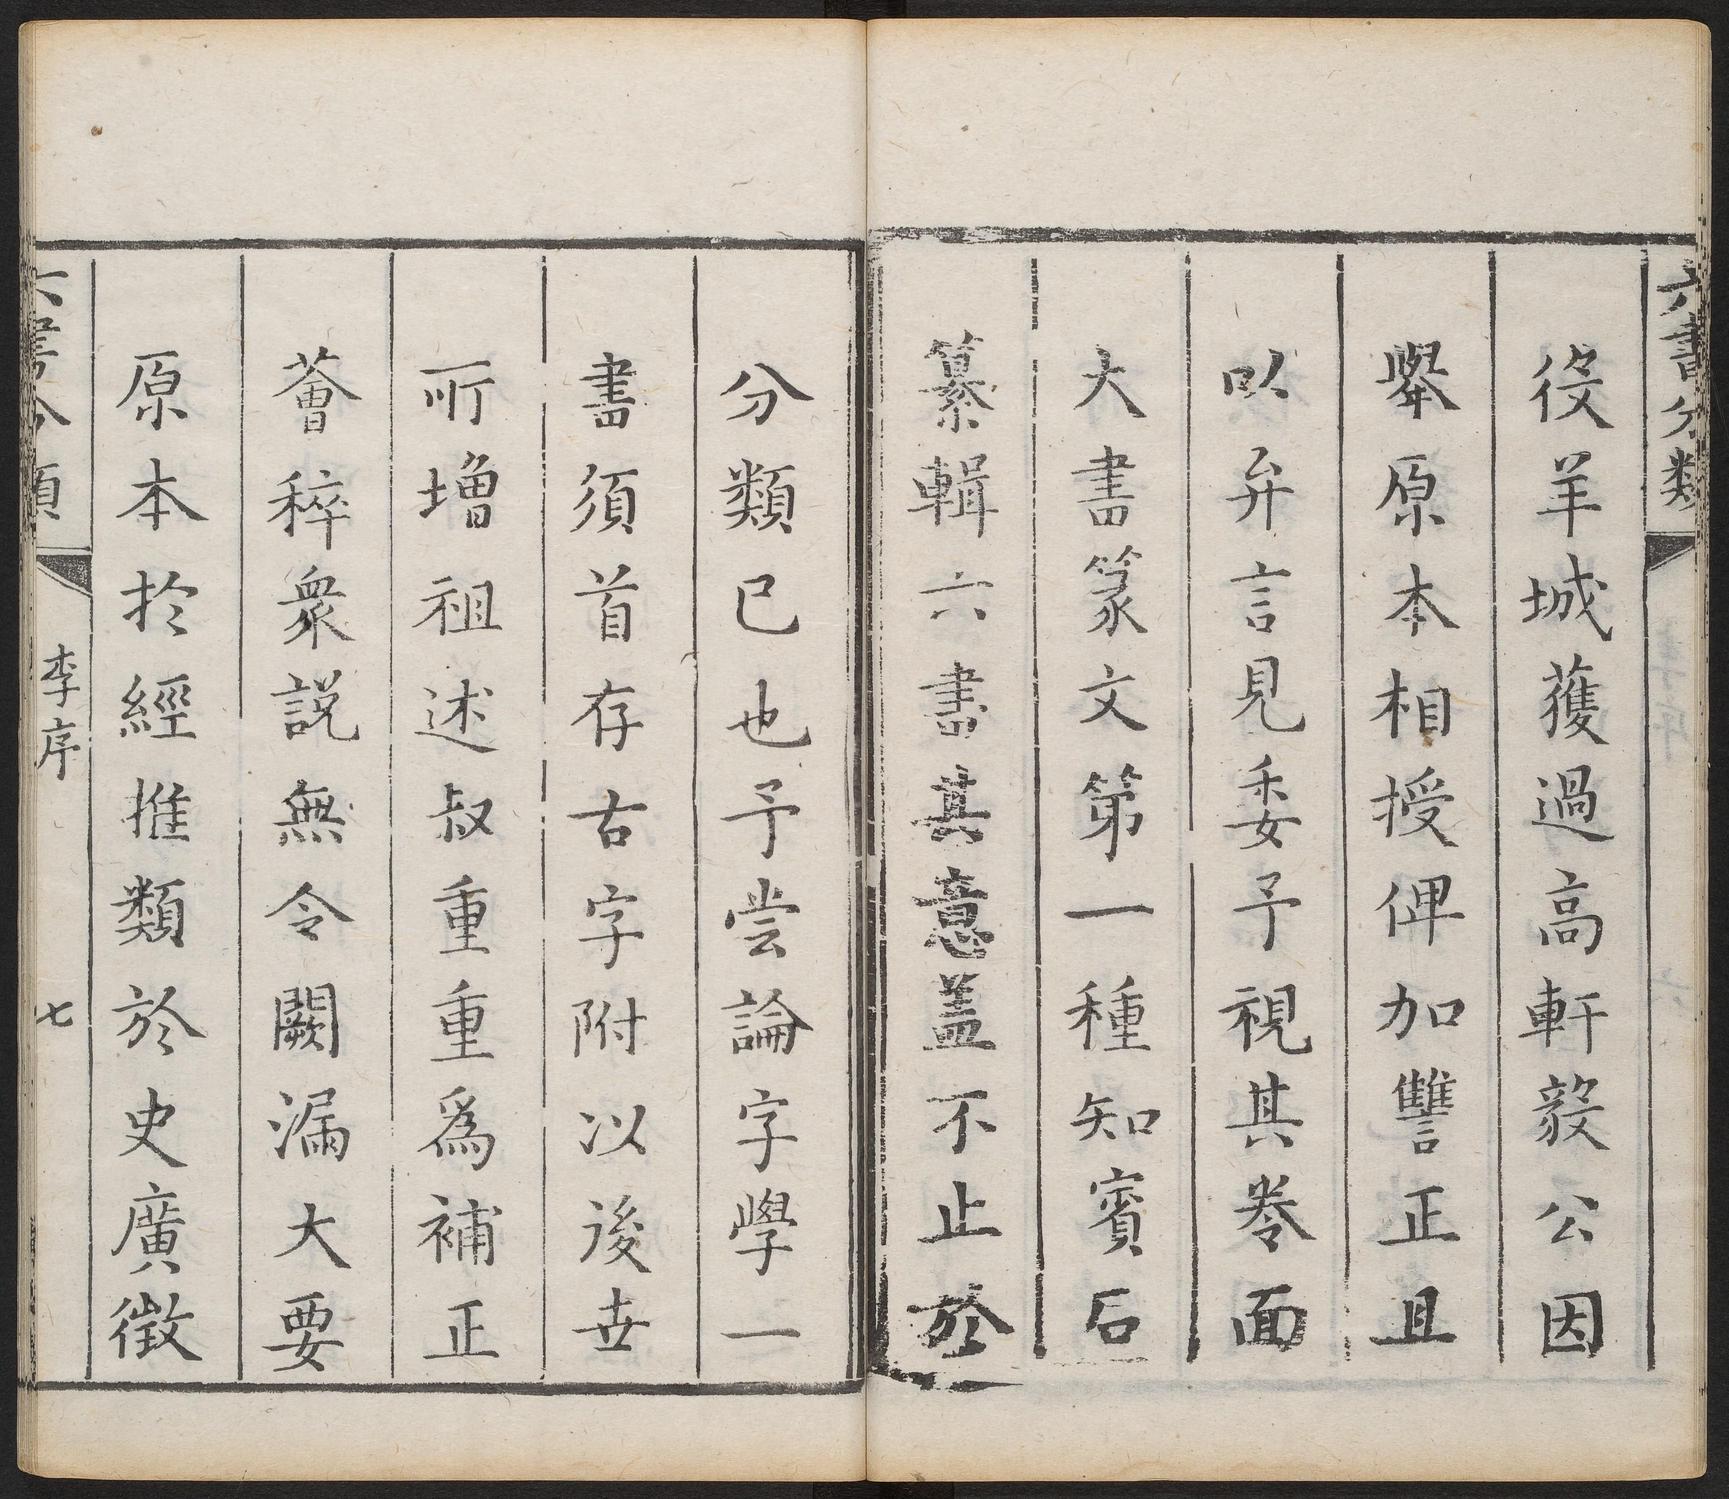 六書分類
役羊城獲過高軒毅公因
舉原本相授俾加讐正且
以弁言見委予視其卷面
大書篆文第一種知賓石
纂輯六書其意蓋不止於
分類已也予嘗論字學一
書須首存古字附以後世
所增祖述叔重重爲補正
薈稡衆説無令闕漏大要
原本於經推類於史廣徵
六書分類
李序
七